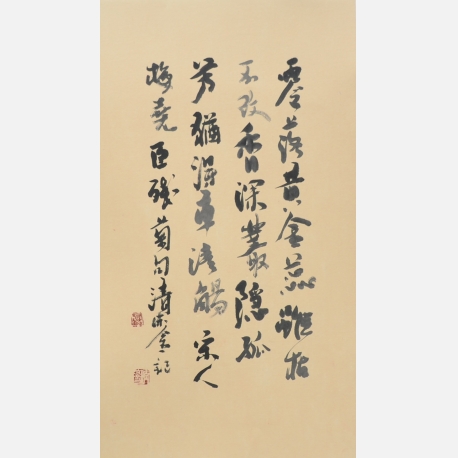 零落黄金蕊雖枯
不改香深叢隐孤
芳猶得車清觴宋人
梅堯臣殘菊句清